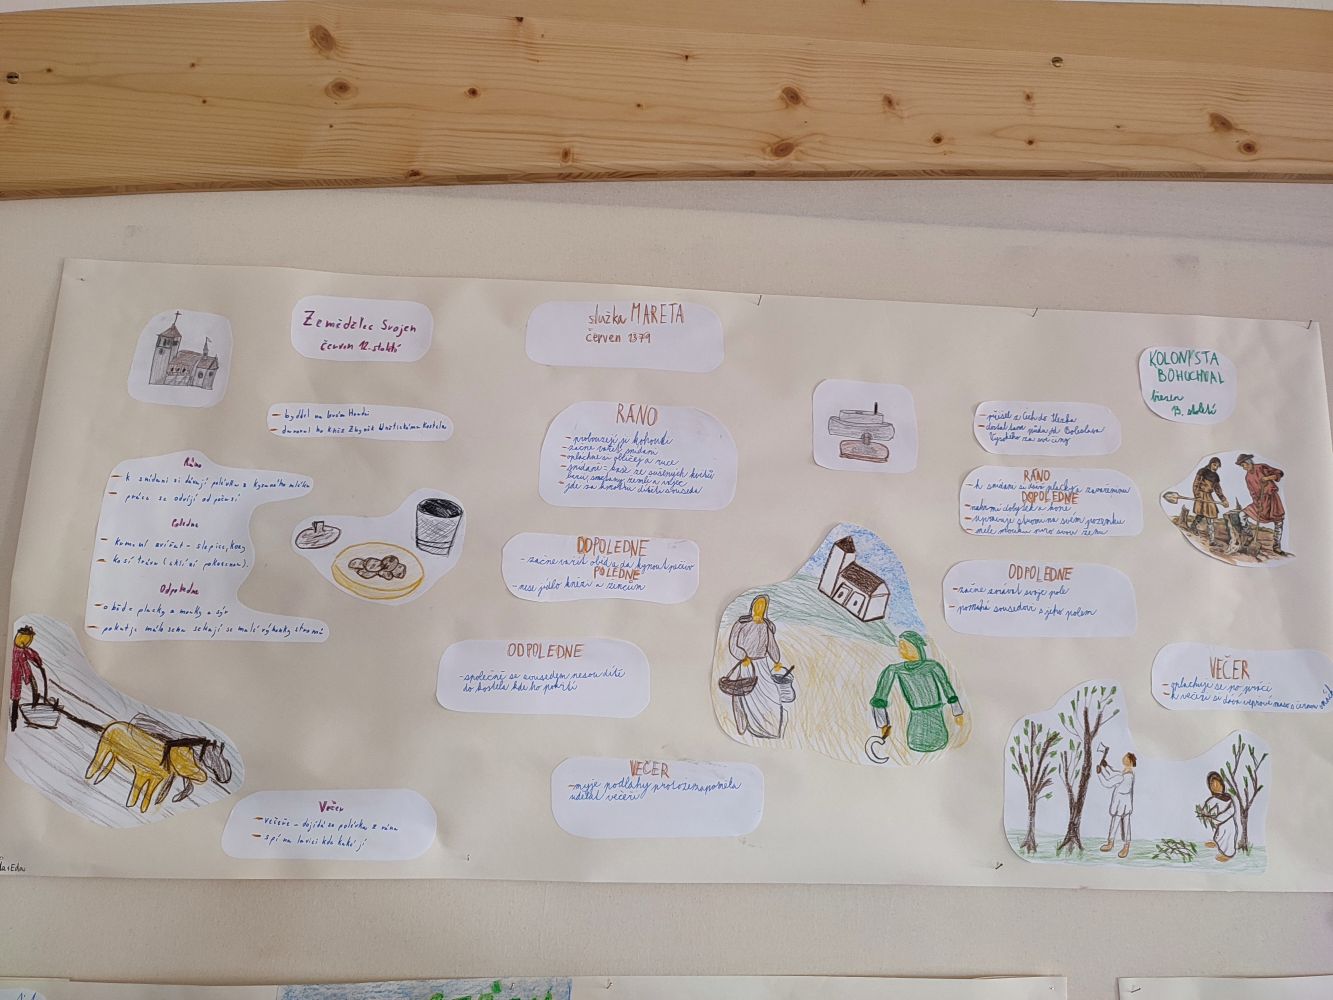 Zemědělec Svojen
červen 12. století
bydlel na
daroval ho kníže Zbyněk kostela
Ráno
- k snídani si dávají polévku z kysaného mléka
- práce se odvíjí od počasí
Poledne
- krmení zvířat - slepice, kozy
- kosí trávu (sklízí pokosenou).
Odpoledne
- oběd = placky z mouky a sýr
- pokud je málo sena sekají se malé výhonky stromů
Večer
- večeře - dojídá se polévka z rána
- spí na lavici kde kdo
služka MARETA
červen 1379
RÁNO
- probouzejí ji kohouti
- začne vařit snídani
- opláchne si obličej a ruce
- snídaně - kaše ze sušených
smetany, zemle a vejce
- jde se k dítěte souseda
DOPOLEDNE
- začne vařit oběd a dá kynout pečivo
POLEDNE
- nese jídlo knězi a žencům
ODPOLEDNE
- společně se sousedem nesou dítě
do kostela kde ho pokřtí
VEČER
- myje podlahy protože zapoměla
udělat večeři
KOLONISTA
BOHUCHVAL
březen
13. století
- přišel z Čech do
- dostal tam půdu od Boleslava
Vysokého za své činy
RÁNO
- k snídani si dává placky se zavařeninou
DOPOLEDNE
- nakrmí dobytek a koně
- upravuje stromy na svém pozemku
- mele mouku pro svou ženu
ODPOLEDNE
- začne srovávat svoje pole
- pomáhá sousedovi s jeho polem
VEČER
- oplachuje se po práci
- k večeři si dává vepřové maso s